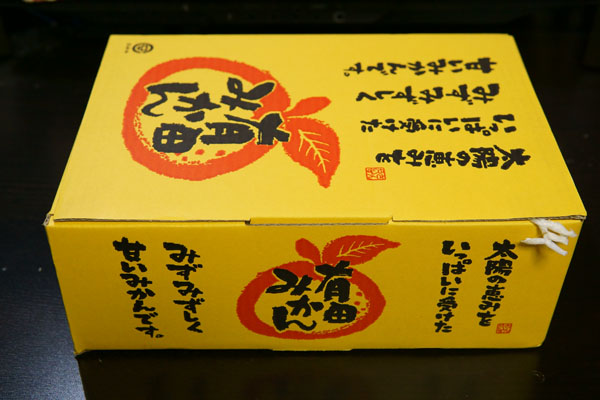 太陽の恵みを
いっぱいに受けた
みずみずしく
甘いみかんです。
有田
みかん
太陽の恵みを
いっぱいに受けた
有田
みかん
みずみずしく
甘いみかんです。